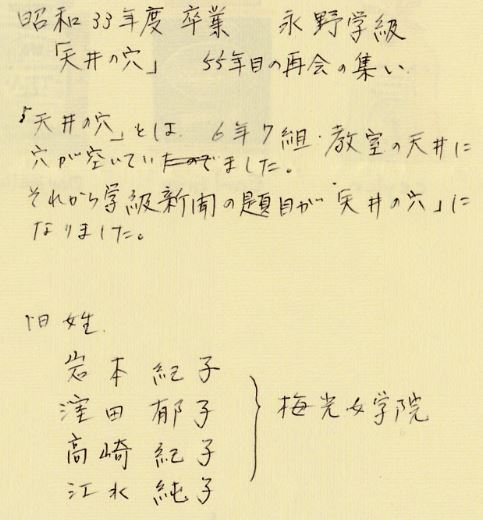 昭和33年度 卒業 永野学級
「天井の穴」 55年目の再会の集い
「天井の穴」とは、6年7組・教室の天井に
穴が空いていたのでました。
それから学級新聞の題目が「天井の穴」に
なりました。
旧姓
岩本 紀子
窪田 郁子
高崎 紀子
江水 純子
梅光女学院